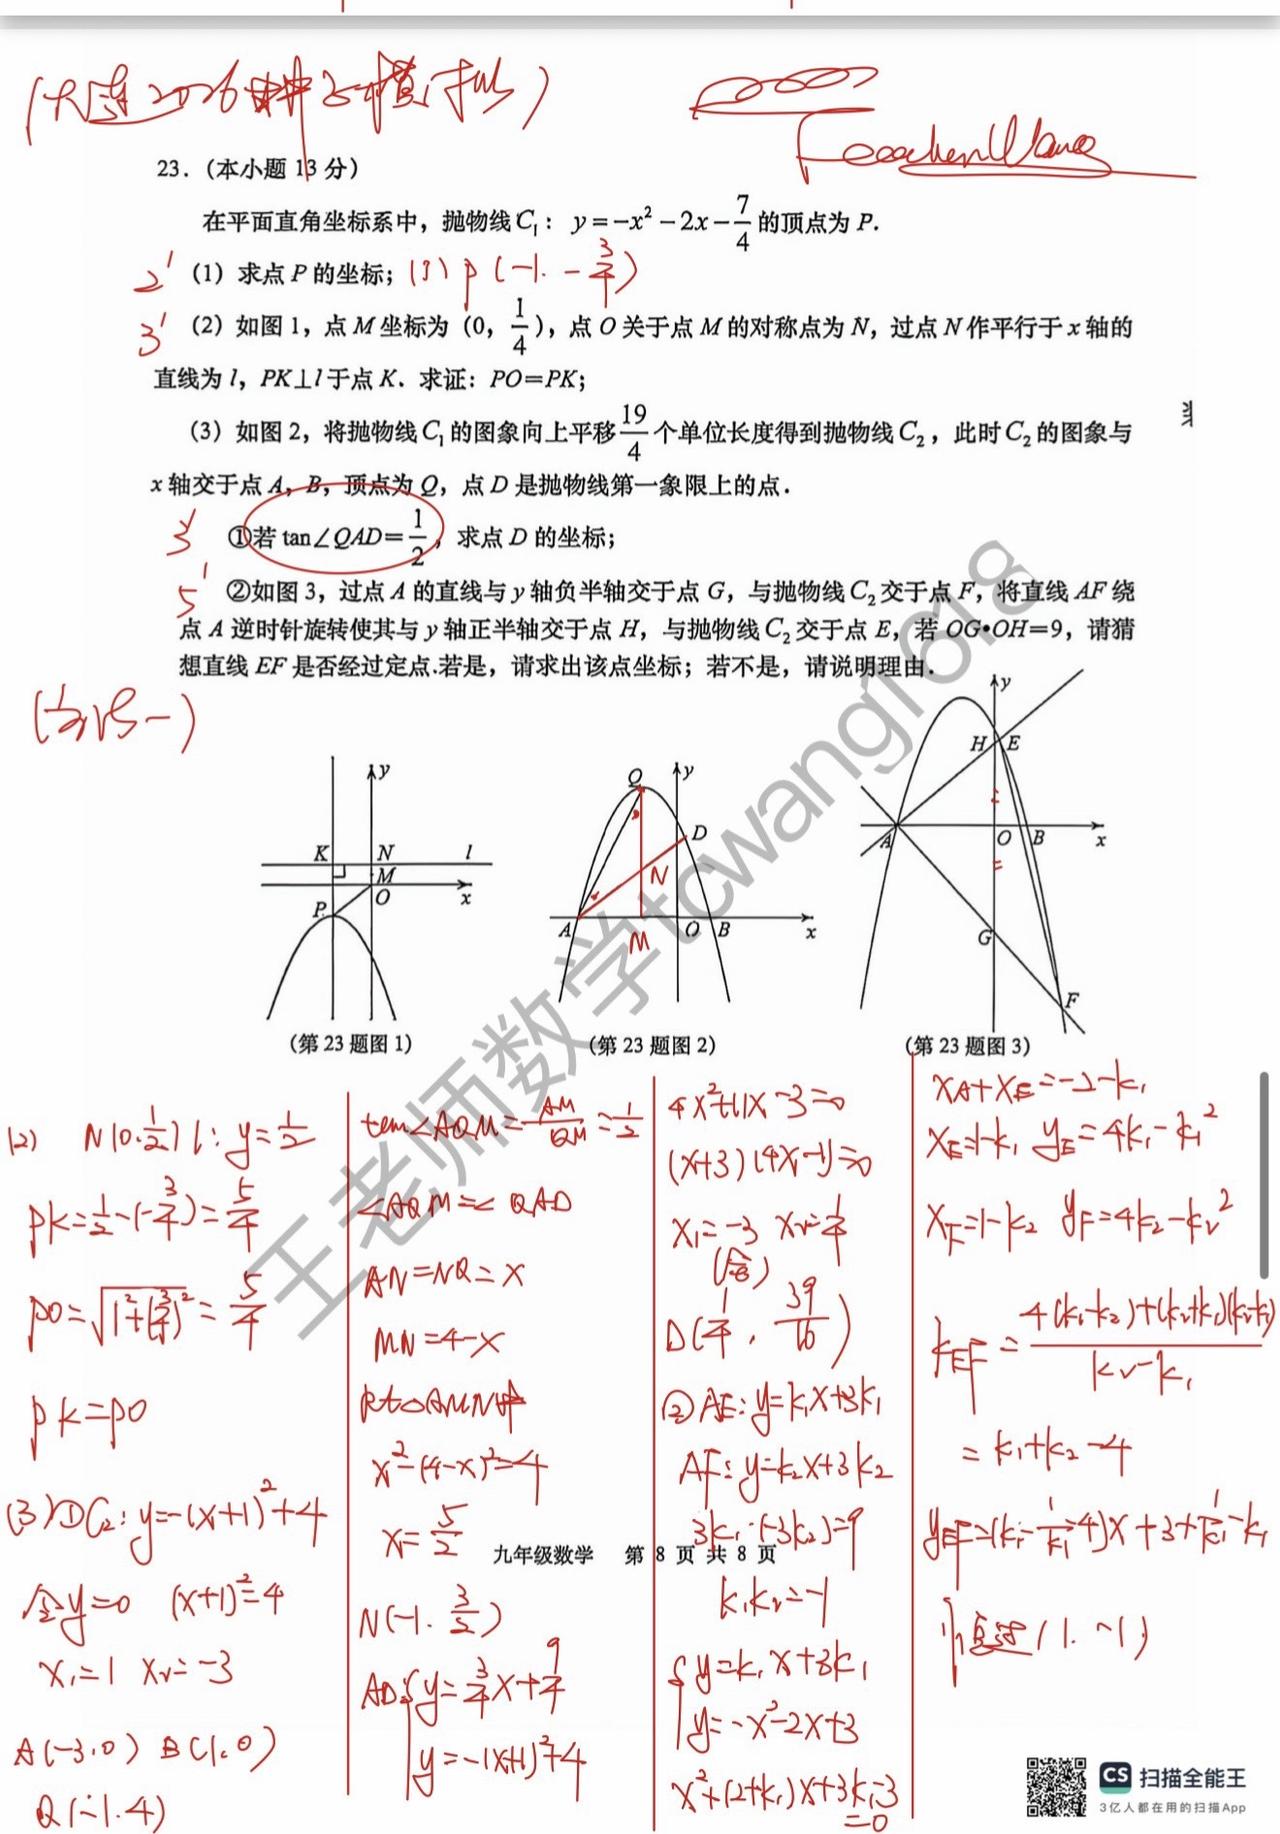 23.（本小题 13 分）
在平面直角坐标系中，抛物线C₁：y=-x²-2x-7/4 的顶点为 P.
2' （1）求点 P 的坐标；(1) P(-1. -3/4)
3' （2）如图 1，点 M 坐标为（0，1/4），点 O 关于点 M 的对称点为 N，过点 N 作平行于 x 轴的
直线为 l，PK⊥l 于点 K．求证：PO=PK；
（3）如图 2，将抛物线 C₁ 的图象向上平移 19/4 个单位长度得到抛物线 C₂，此时 C₂ 的图象与
x 轴交于点 A，B，顶点为 Q，点 D 是抛物线第一象限上的点．
3' ①若 tan∠QAD=1/2，求点 D 的坐标；
5' ②如图 3，过点 A 的直线与 y 轴负半轴交于点 G，与抛物线 C₂ 交于点 F，将直线 AF 绕
点 A 逆时针旋转使其与 y 轴正半轴交于点 H，与抛物线 C₂ 交于点 E，若 OG•OH=9，请猜
想直线 EF 是否经过定点.若是，请求出该点坐标；若不是，请说明理由．
K N l M O x y P
Q y D N A M O B x
y H E A O B x G F
（第 23 题图 1）
（第 23 题图 2）
（第 23 题图 3）
(2) N(0.1/2) l: y=1/2
PK=1/2-(-3/4)=5/4
PO=√(1²+(3/4)²)=5/4
PK=PO
(3)①C₂: y=-(x+1)²+4
令y=0 (x+1)²=4
x₁=1 x₂=-3
A(-3.0) B(1.0)
Q(-1.4)
tan∠AQM=AM/QM=1/2
∠AQM=∠QAD
AN=NQ=x
MN=4-x
Rt△AMN中
x²-(4-x)²=4
x=5/2
N(-1. 3/2)
AD: {y=3/4x+9/4
y=-(x+1)²+4
4x²+11x-3=0
(x+3)(4x-1)=0
x₁=-3 x₂=1/4
(舍)
D(1/4, 39/16)
②AE: y=k₁x+3k₁
AF: y=k₂x+3k₂
3k₁·(-3k₂)=9
k₁k₂=-1
{y=k₁x+3k₁
y=-x²-2x+3
x²+(2+k₁)x+3k₁-3
=0
x_A+x_E=-2-k₁
x_E=1-k₁ y_E=4k₁-k₁²
x_F=1-k₂ y_F=4k₂-k₂²
k_EF=4(k₁-k₂)+(k₂+k₁)(k₂-k₁)/k₂-k₁
=k₁+k₂-4
y_EF=(k₁-1/k₁-4)x+3+1/k₁-k₁
过(1. -1)
九年级数学 第 8 页 共 8 页
王老师数学tcwang1618
CS 扫描全能王
3亿人都在用的扫描App